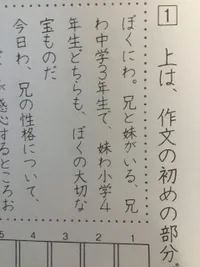 1
上は、作文の初めの部分。
ぼくにわ。兄と妹がいる、兄
わ中学3年生で、妹わ小学4
年生。どちらも、ぼくの大切な
宝ものだ
今日わ、兄の性格について、
が感心するところお
1
2
3
4
5